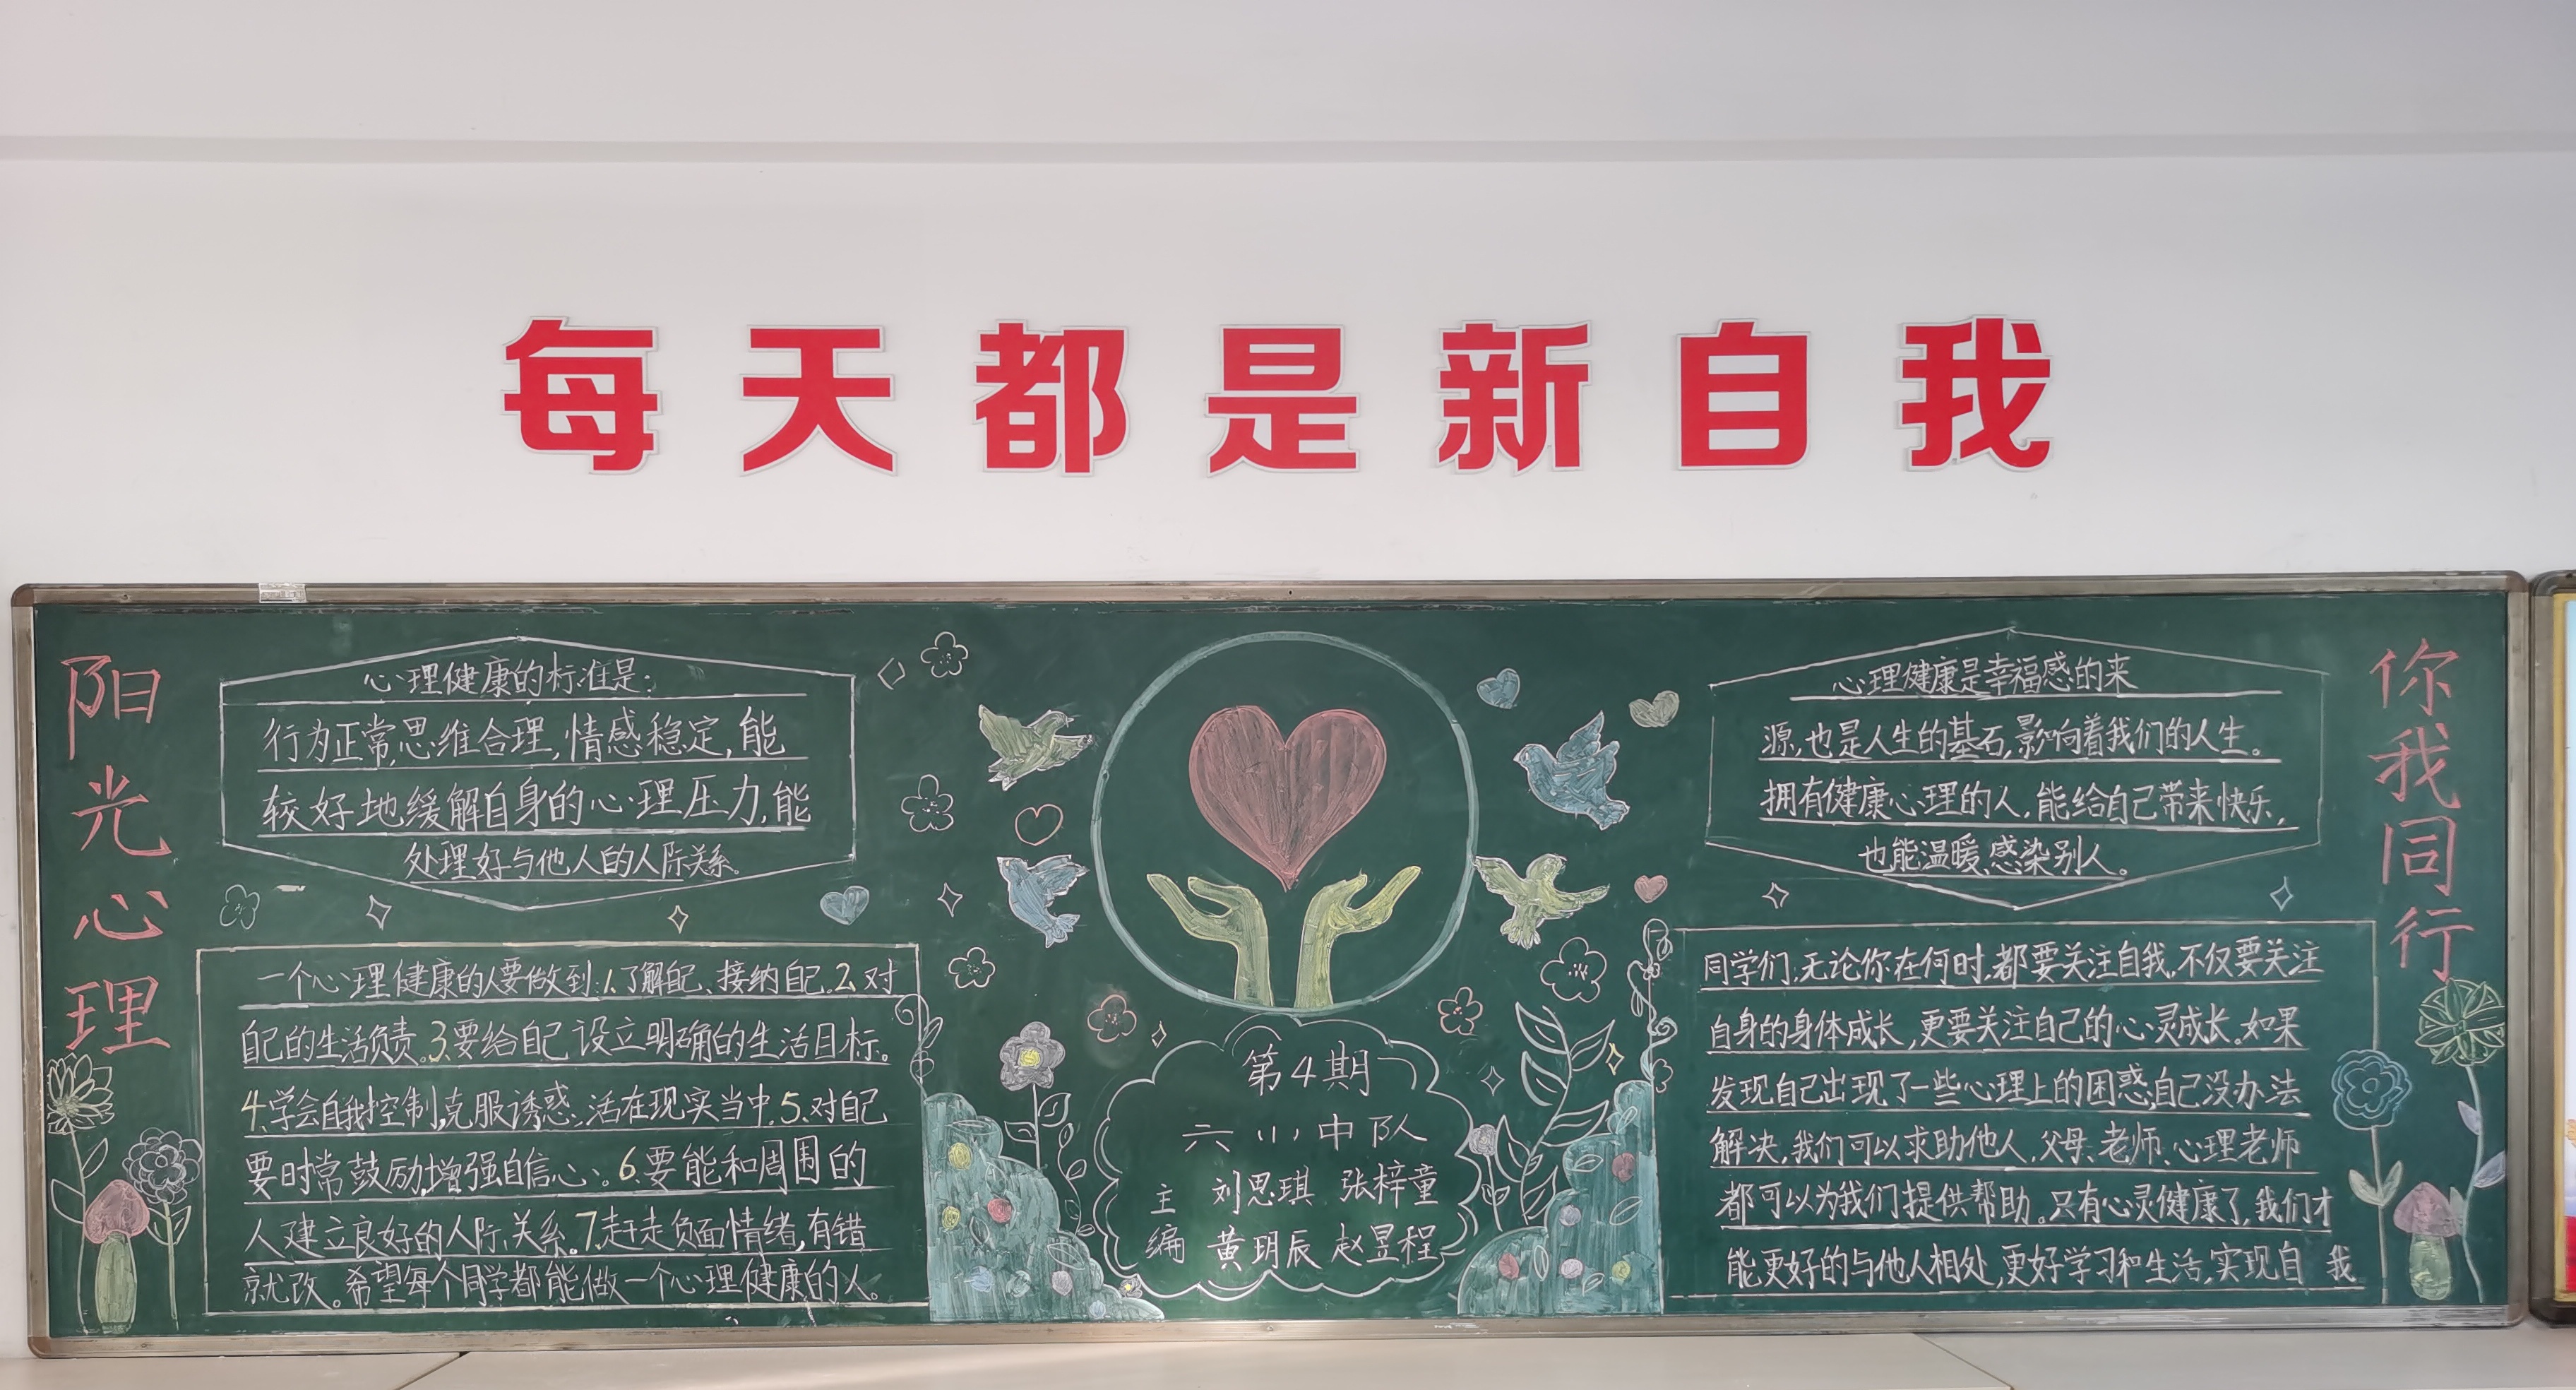 每天都是新自我
阳光心理
心理健康的标准是:
行为正常,思维合理,情感稳定,能
较好地缓解自身的心理压力,能
处理好与他人的人际关系。
一个心理健康的人要做到:1.了解自己、接纳自己。2.对
自己的生活负责。3.要给自己设立明确的生活目标。
4.学会自我控制,克服诱惑,活在现实当中.5.对自己
要时常鼓励,增强自信心。6.要能和周围的
人建立良好的人际关系。7.赶走负面情绪,有错
就改。希望每个同学都能做一个心理健康的人。
第4期
六(1)中队
主编
刘思琪 张梓童
黄玥辰 赵昱程
心理健康是幸福感的来
源,也是人生的基石,影响着我们的人生。
拥有健康心理的人,能给自己带来快乐,
也能温暖、感染别人。
同学们,无论你在何时,都要关注自我,不仅要关注
自身的身体成长,更要关注自己的心灵成长。如果
发现自己出现了一些心理上的困惑,自己没办法
解决,我们可以求助他人,父母、老师、心理老师
都可以为我们提供帮助。只有心灵健康了,我们才
能更好的与他人相处,更好学习和生活,实现自我
你我同行